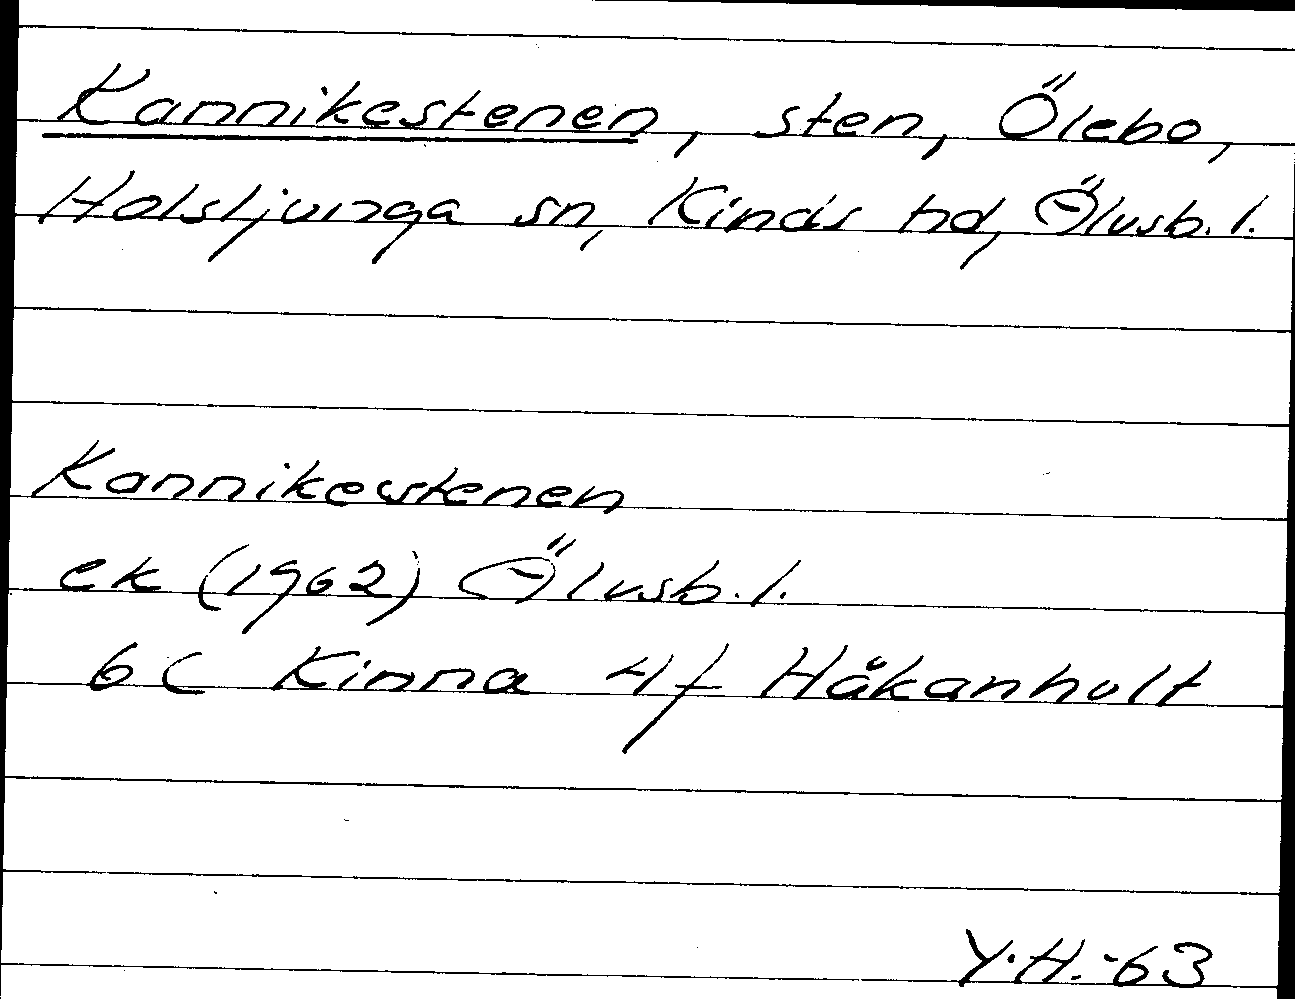 Kannikestenen, sten, Ölebo,
Holsljunga sn, Kinds hd, Älvsb. l.
Kannikestenen
ek (1962) Älvsb. l.
6 C Kinna 4 f Håkanhult
Y.H.-63